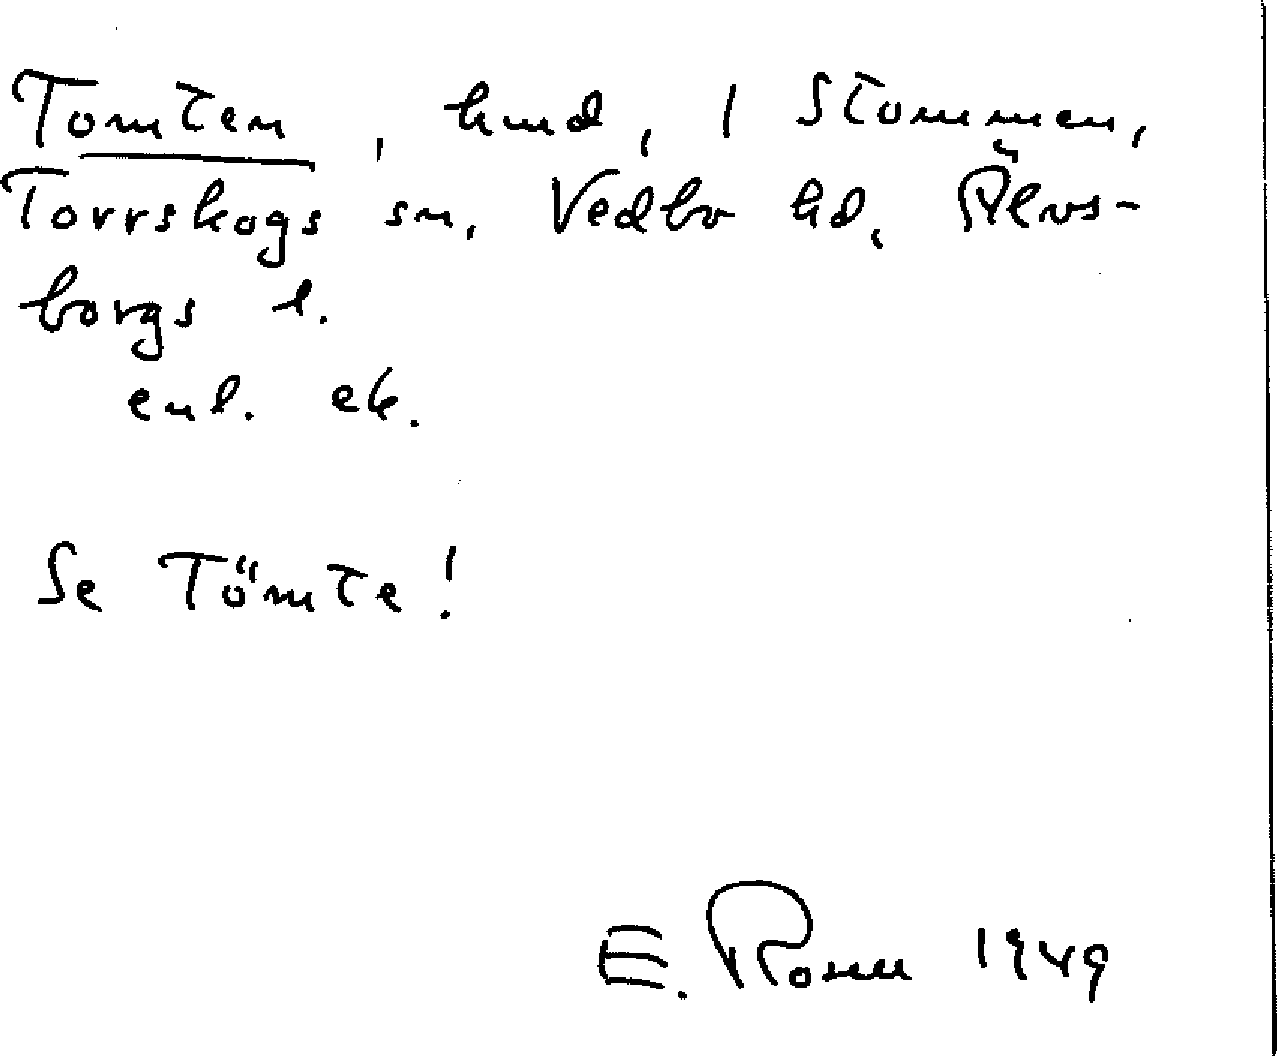 Tomten, hmd, i Stommen,
Torrskogs sn, Vedbo hd, Älvs-
borgs l.
enl. ek.
Se Tömte!
E. 1949